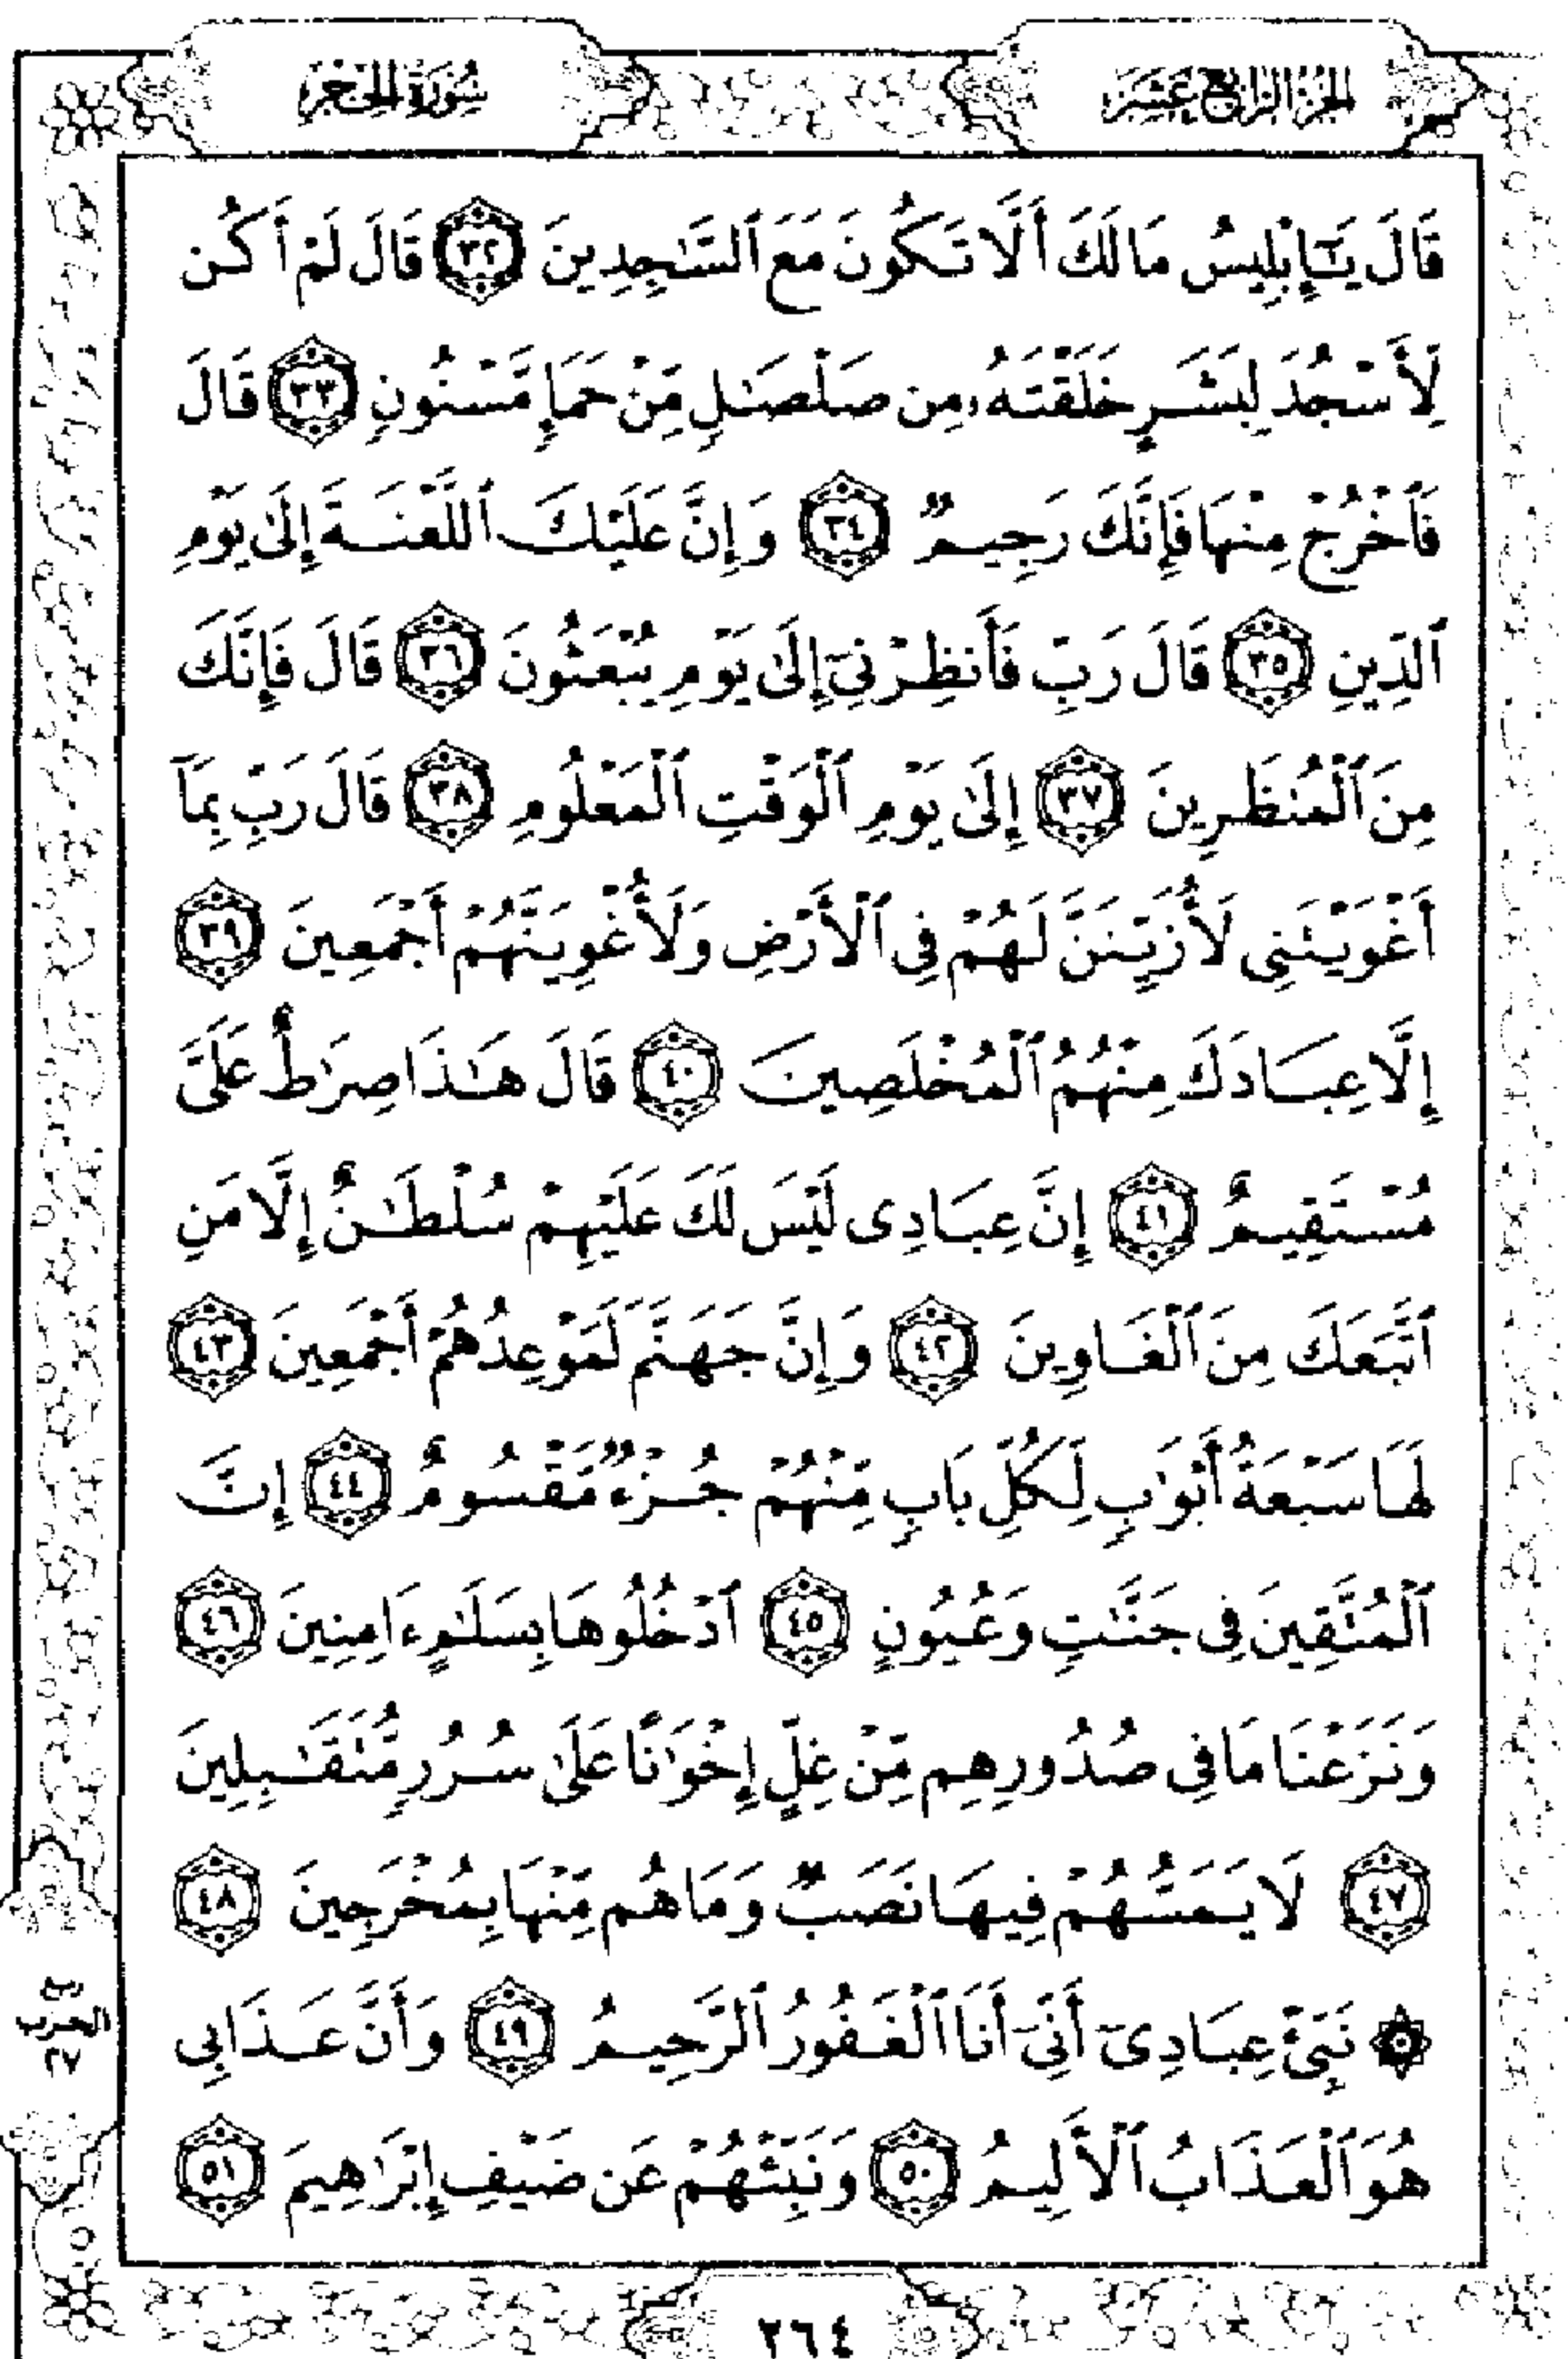 الجزء الرابع عشر
سورة الحجر
قَالَ يَـٰٓإِبْلِيسُ مَا لَكَ أَلَّا تَكُونَ مَعَ ٱلسَّـٰجِدِينَ ﴿٣٢﴾ قَالَ لَمْ أَكُن
لِّأَسْجُدَ لِبَشَرٍ خَلَقْتَهُۥ مِن صَلْصَـٰلٍ مِّنْ حَمَإٍ مَّسْنُونٍ ﴿٣٣﴾ قَالَ
فَٱخْرُجْ مِنْهَا فَإِنَّكَ رَجِيمٌ ﴿٣٤﴾ وَإِنَّ عَلَيْكَ ٱللَّعْنَةَ إِلَىٰ يَوْمِ
ٱلدِّينِ ﴿٣٥﴾ قَالَ رَبِّ فَأَنظِرْنِىٓ إِلَىٰ يَوْمِ يُبْعَثُونَ ﴿٣٦﴾ قَالَ فَإِنَّكَ
مِنَ ٱلْمُنظَرِينَ ﴿٣٧﴾ إِلَىٰ يَوْمِ ٱلْوَقْتِ ٱلْمَعْلُومِ ﴿٣٨﴾ قَالَ رَبِّ بِمَآ
أَغْوَيْتَنِى لَأُزَيِّنَنَّ لَهُمْ فِى ٱلْأَرْضِ وَلَأُغْوِيَنَّهُمْ أَجْمَعِينَ ﴿٣٩﴾
إِلَّا عِبَادَكَ مِنْهُمُ ٱلْمُخْلَصِينَ ﴿٤٠﴾ قَالَ هَـٰذَا صِرَٰطٌ عَلَىَّ
مُسْتَقِيمٌ ﴿٤١﴾ إِنَّ عِبَادِى لَيْسَ لَكَ عَلَيْهِمْ سُلْطَـٰنٌ إِلَّا مَنِ
ٱتَّبَعَكَ مِنَ ٱلْغَاوِينَ ﴿٤٢﴾ وَإِنَّ جَهَنَّمَ لَمَوْعِدُهُمْ أَجْمَعِينَ ﴿٤٣﴾
لَهَا سَبْعَةُ أَبْوَٰبٍ لِّكُلِّ بَابٍ مِّنْهُمْ جُزْءٌ مَّقْسُومٌ ﴿٤٤﴾ إِنَّ
ٱلْمُتَّقِينَ فِى جَنَّـٰتٍ وَعُيُونٍ ﴿٤٥﴾ ٱدْخُلُوهَا بِسَلَـٰمٍ ءَامِنِينَ ﴿٤٦﴾
وَنَزَعْنَا مَا فِى صُدُورِهِم مِّنْ غِلٍّ إِخْوَٰنًا عَلَىٰ سُرُرٍ مُّتَقَـٰبِلِينَ
﴿٤٧﴾ لَا يَمَسُّهُمْ فِيهَا نَصَبٌ وَمَا هُم مِّنْهَا بِمُخْرَجِينَ ﴿٤٨﴾
۞ نَبِّئْ عِبَادِىٓ أَنِّىٓ أَنَا ٱلْغَفُورُ ٱلرَّحِيمُ ﴿٤٩﴾ وَأَنَّ عَذَابِى
هُوَ ٱلْعَذَابُ ٱلْأَلِيمُ ﴿٥٠﴾ وَنَبِّئْهُمْ عَن ضَيْفِ إِبْرَٰهِيمَ ﴿٥١﴾
الحزب
٢٦٤